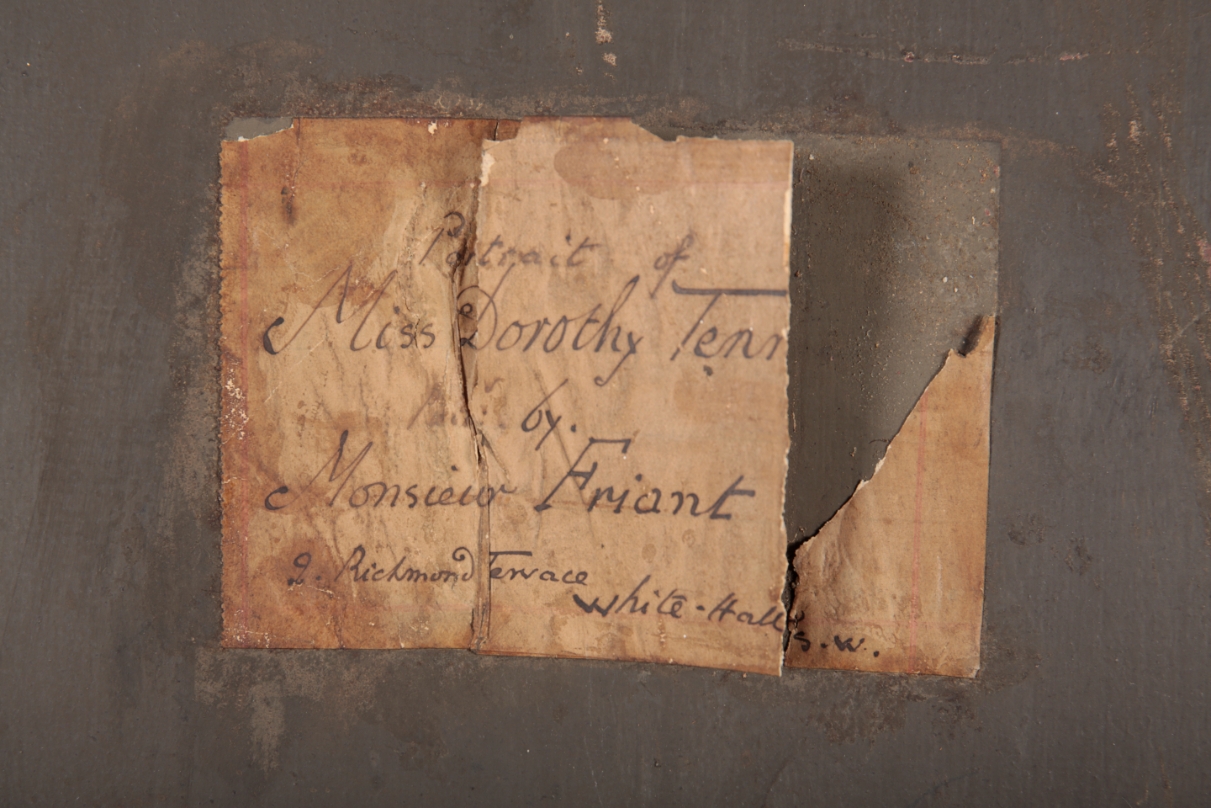 Portrait of
Miss Dorothy Tenn
by.
Monsieur Friant
2. Richmond Terrace
White-Hall
S.W.